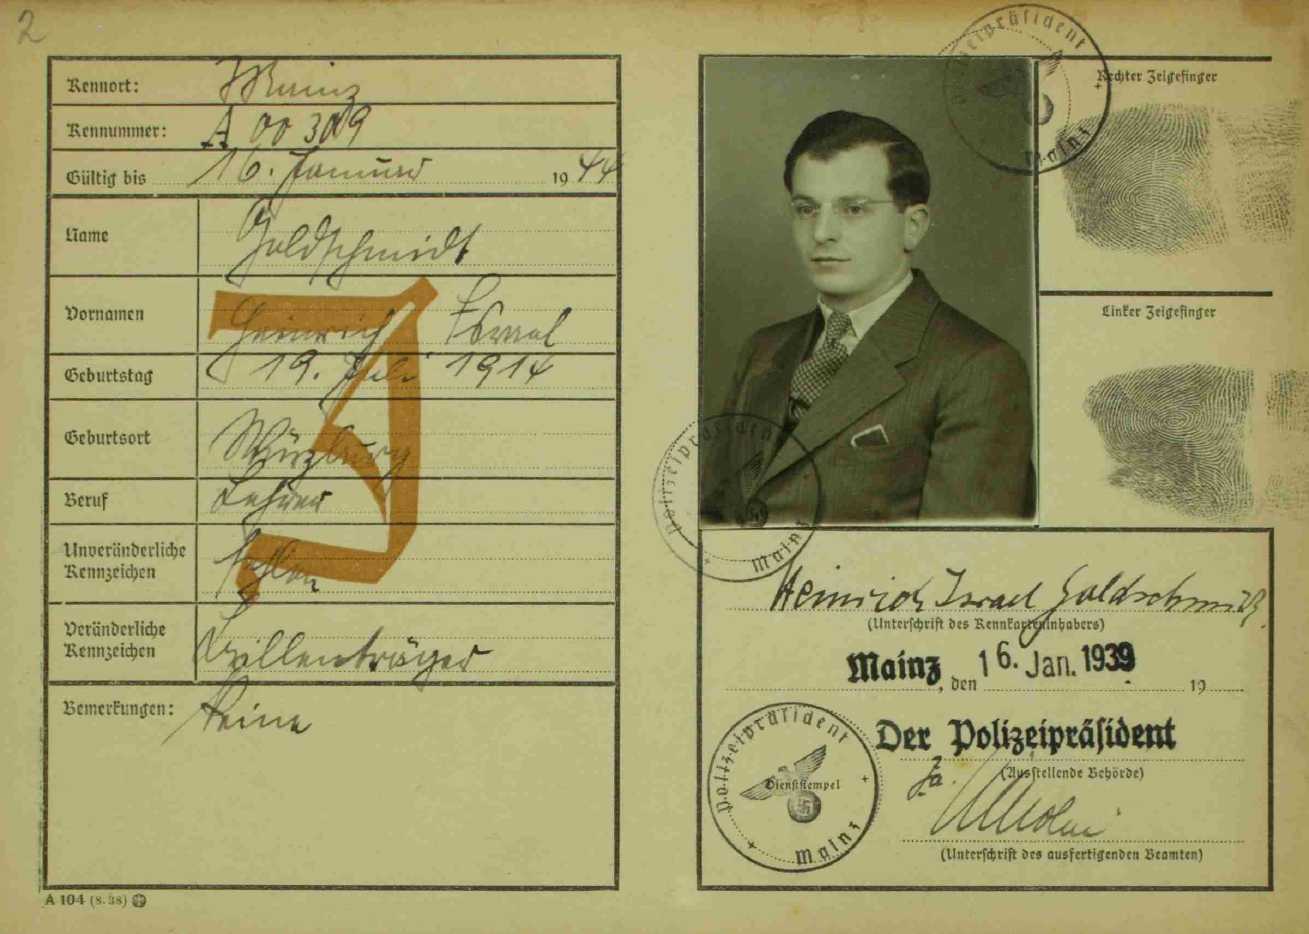 2
Kennort: Mainz
Kennummer: A 00309
Gültig bis 16. Januar 1944
Name Goldschmidt
Vornamen Heinrich Israel
Geburtstag 19. Juli 1914
Geburtsort Würzburg
Beruf Lehrer
Unveränderliche
Kennzeichen fehlen
Veränderliche
Kennzeichen Brillenträger
Bemerkungen: Keine
J
A 104 (8. 38)
Polizeipräsident
Mainz
Rechter Zeigefinger
Linker Zeigefinger
Polizeipräsident
Mainz
Heinrich Israel Goldschmidt
(Unterschrift des Kennkarteninhabers)
Mainz, den 16. Jan. 1939 19
Der Polizeipräsident
(Ausstellende Behörde)
Polizeipräsident
Dienststempel
Mainz
(Unterschrift des ausfertigenden Beamten)